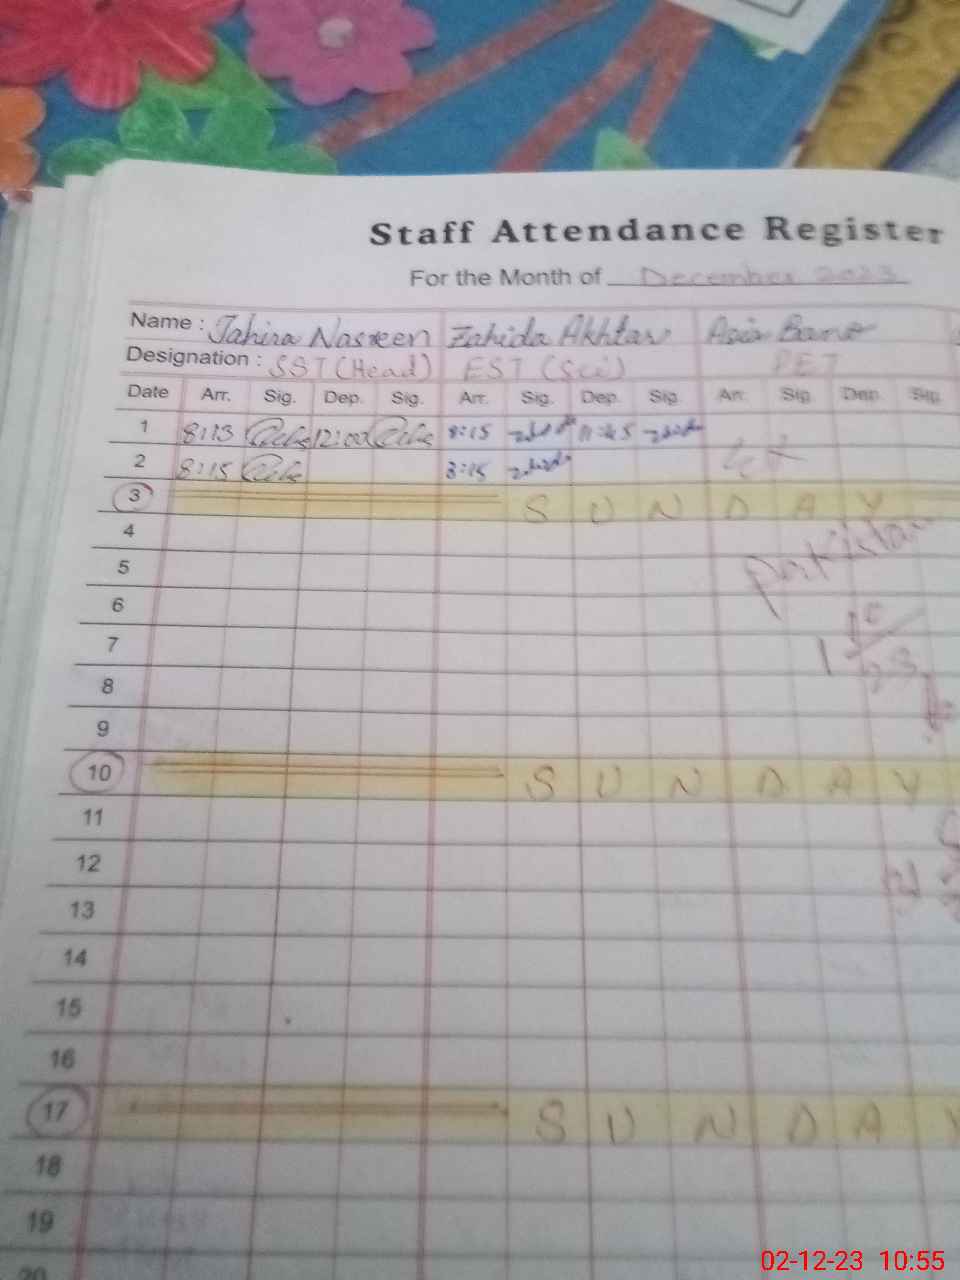 Staff Attendance Register
For the Month of December 2023
Name : Tahira Nasreen Zahida Akhtar Asia Bano
Designation : SST (Head) EST (Sci) PET
Date Arr. Sig. Dep. Sig. Arr. Sig. Dep. Sig. Arr. Sig. Dep. Sig.
1 8:13 12:00 8:15 11:45
2 8:15 8:15
3 SUNDAY
4
5
6
7
8
9
10 SUNDAY
11
12
13
14
15
16
17 SUNDAY
18
19
20
02-12-23 10:55